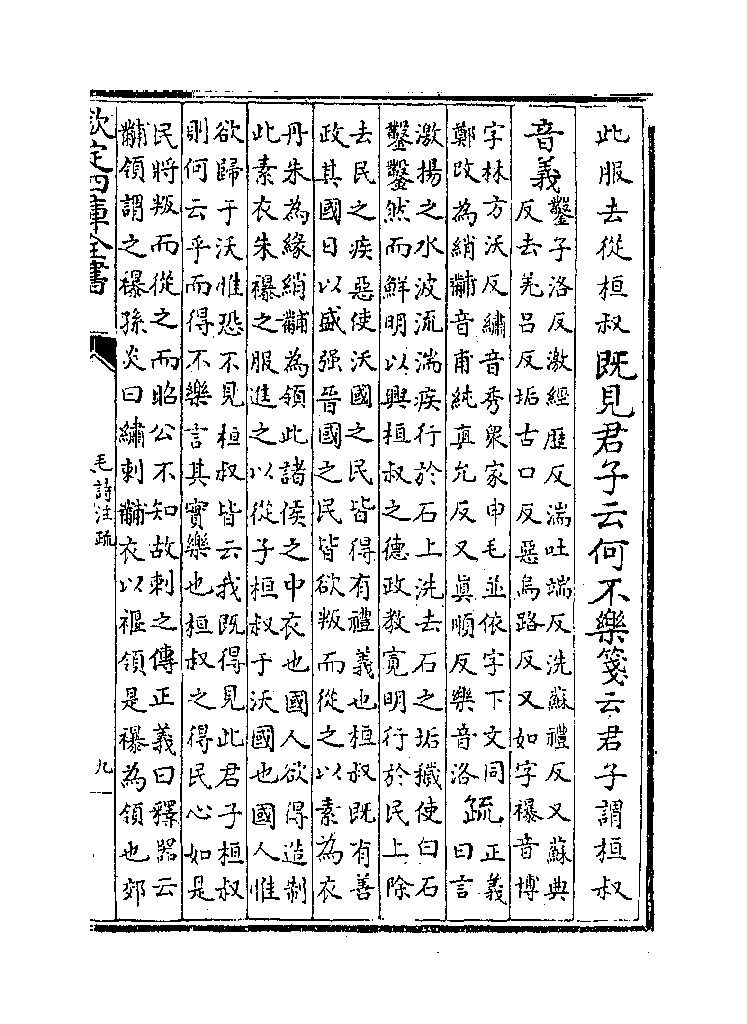 此服去從桓叔既見君子云何不樂箋云君子謂桓叔
音義
鑿子洛反激經歷反湍吐端反洗蘇禮反又蘇典
反去羌呂反垢古口反惡烏路反又如字襮音博
字林方沃反繡音秀衆家申毛並依字下文同
鄭改為綃黼音甫純真允反又真順反樂音洛
疏
正義
曰言
激揚之水波流湍疾行於石上洗去石之垢穢使曰石
鑿鑿然而鮮明以興桓叔之德政教寛明行於民上除
去民之疾惡使沃國之民皆得有禮義也桓叔既有善
政其國日以盛强晉國之民皆欲叛而從之以素為衣
丹朱為緣綃黼為領此諸侯之中衣也國人欲得造制
此素衣朱襮之服進之以從子桓叔于沃國也國人惟
欲歸于沃惟恐不見桓叔皆云我既得見此君子桓叔
則何云乎而得不樂言其實樂也桓叔之得民心如是
民將叛而從之而昭公不知故刺之傳正義曰釋器云
黼領謂之襮孫炎曰繡刺黼衣以褗領是襮為領也郊
欽定四庫全書
毛詩注疏
九